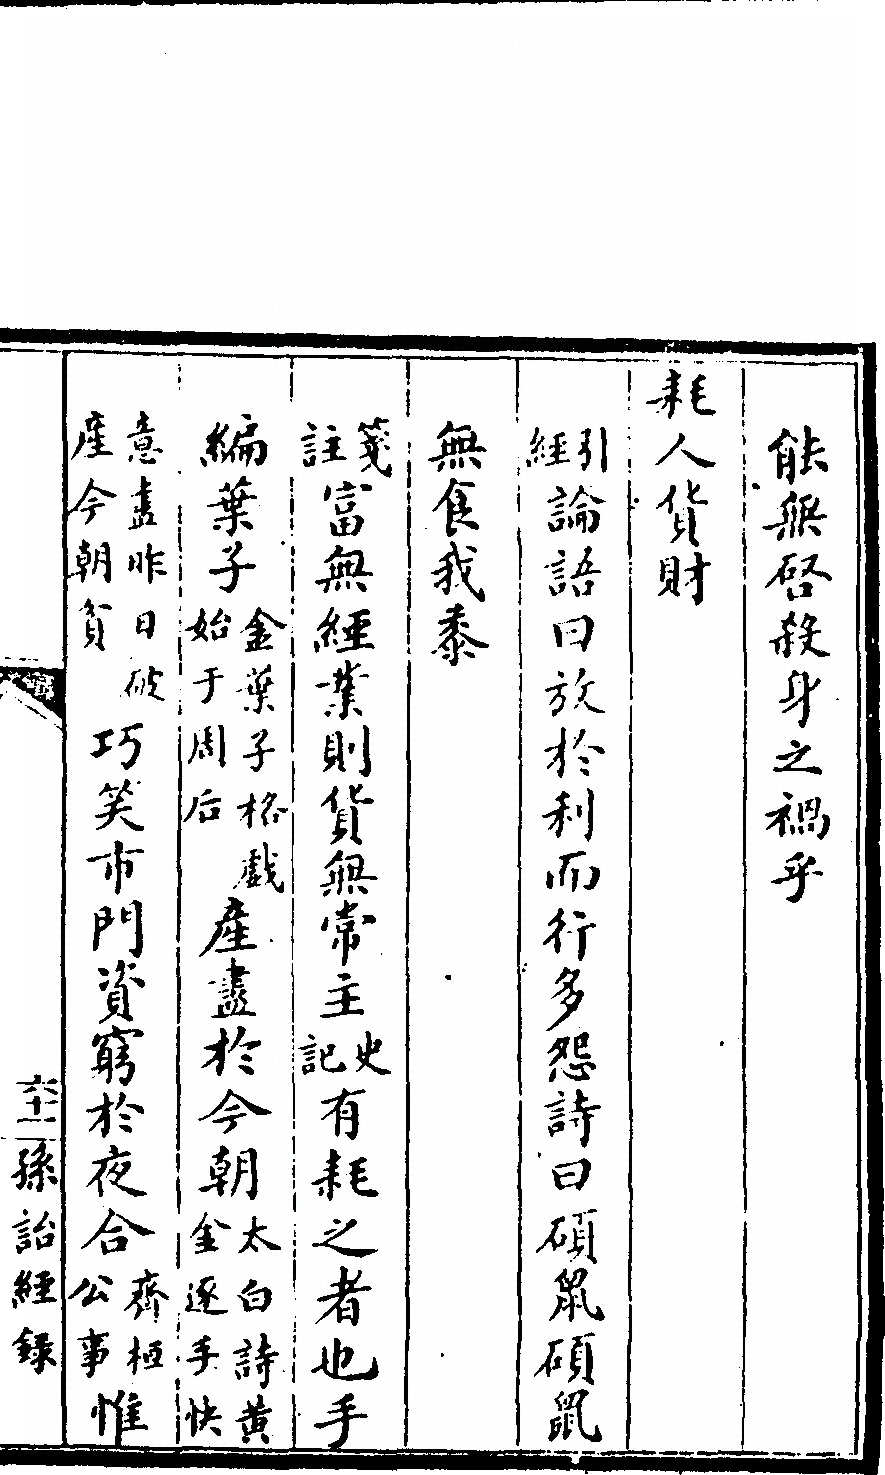 能無啓殺身之禍乎
耗人貨財
引經論語曰放於利而行多怨詩曰碩鼠碩鼠
無食我黍
箋註富無經業則貨無常主史記有耗之者也手
編葉子金葉子格戲始于周后產盡於今朝太白詩黃金逐手快
意盡昨日破產今朝貧巧笑市門資窮於夜合齊桓公事惟
六十一孫詒經錄